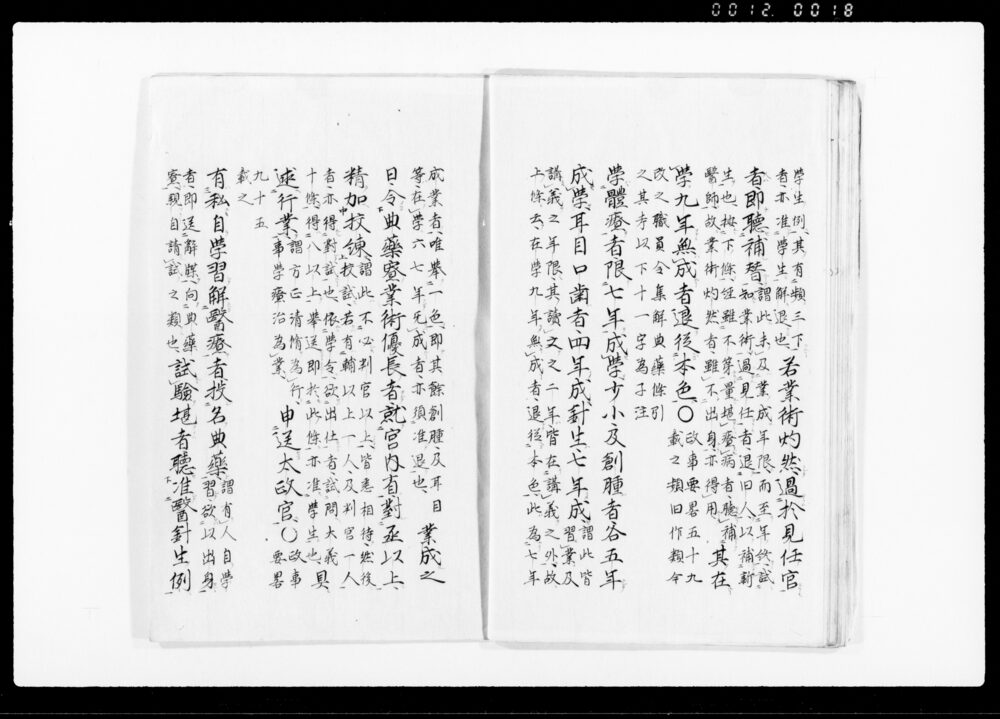 0012.0018
学生例其有頬三下
者亦准学生解退也 若業術灼然過於見任官
者即聽補替 謂此未及業成年限而至年終試
知業術過見任者退旧人以補新
生也按下條経雖不等量堪療病者聽補
醫師故業術灼然者雖不出身亦得用 其在
學九年無成者退從本色○政事要畧五十九
載之類旧作類令
改之職員令集解典藥條引
之其考以下十一字為子注
學體療者限七年成學少小及創腫者各五年
成學耳目口歯者四年成針生七年成 謂此皆
習業及
講義之年限其讀文之二年皆在講義之外故
上條云在学九年無成者退從本色此為七年
成業者唯舉一色即其餘創腫及耳目
等在学六七年无成者亦須准退也 業成之
日令典藥寮業術優長者就宮内省對丞以上
精加校練 謂此不必判官以上皆悉相待然後
校試若有輔以上一人及判官一人
者亦得對試也依學令欲出仕者試問大義
十條得八以上舉送即於此條亦准學生也 具
述行業 謂方正清脩為行
事学療治為業 申送太政官○政事
要畧
九十五
載之
有私自學習解醫療者投名典藥 謂有人自學
習欲以出身
者即送解牒向典藥
寮親自請試之類也 試驗堪者聽准醫針生例